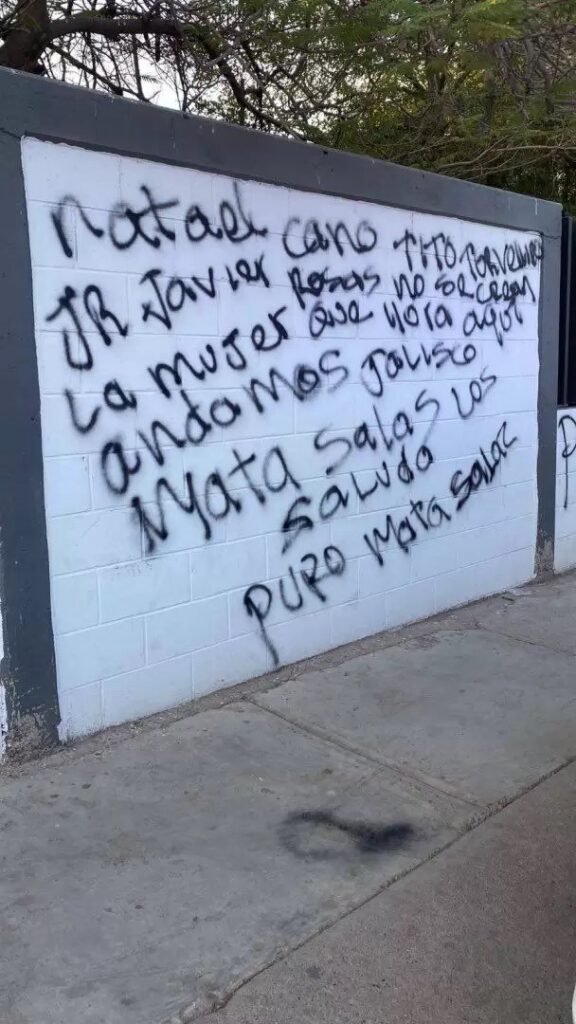 Rafael cano TITO TORVELLINO
JR Javier Rosas no se crean
La mujer que llora aqui
andamos Jalisco
Mata salas Los
saludo
puro Mata salaz
P